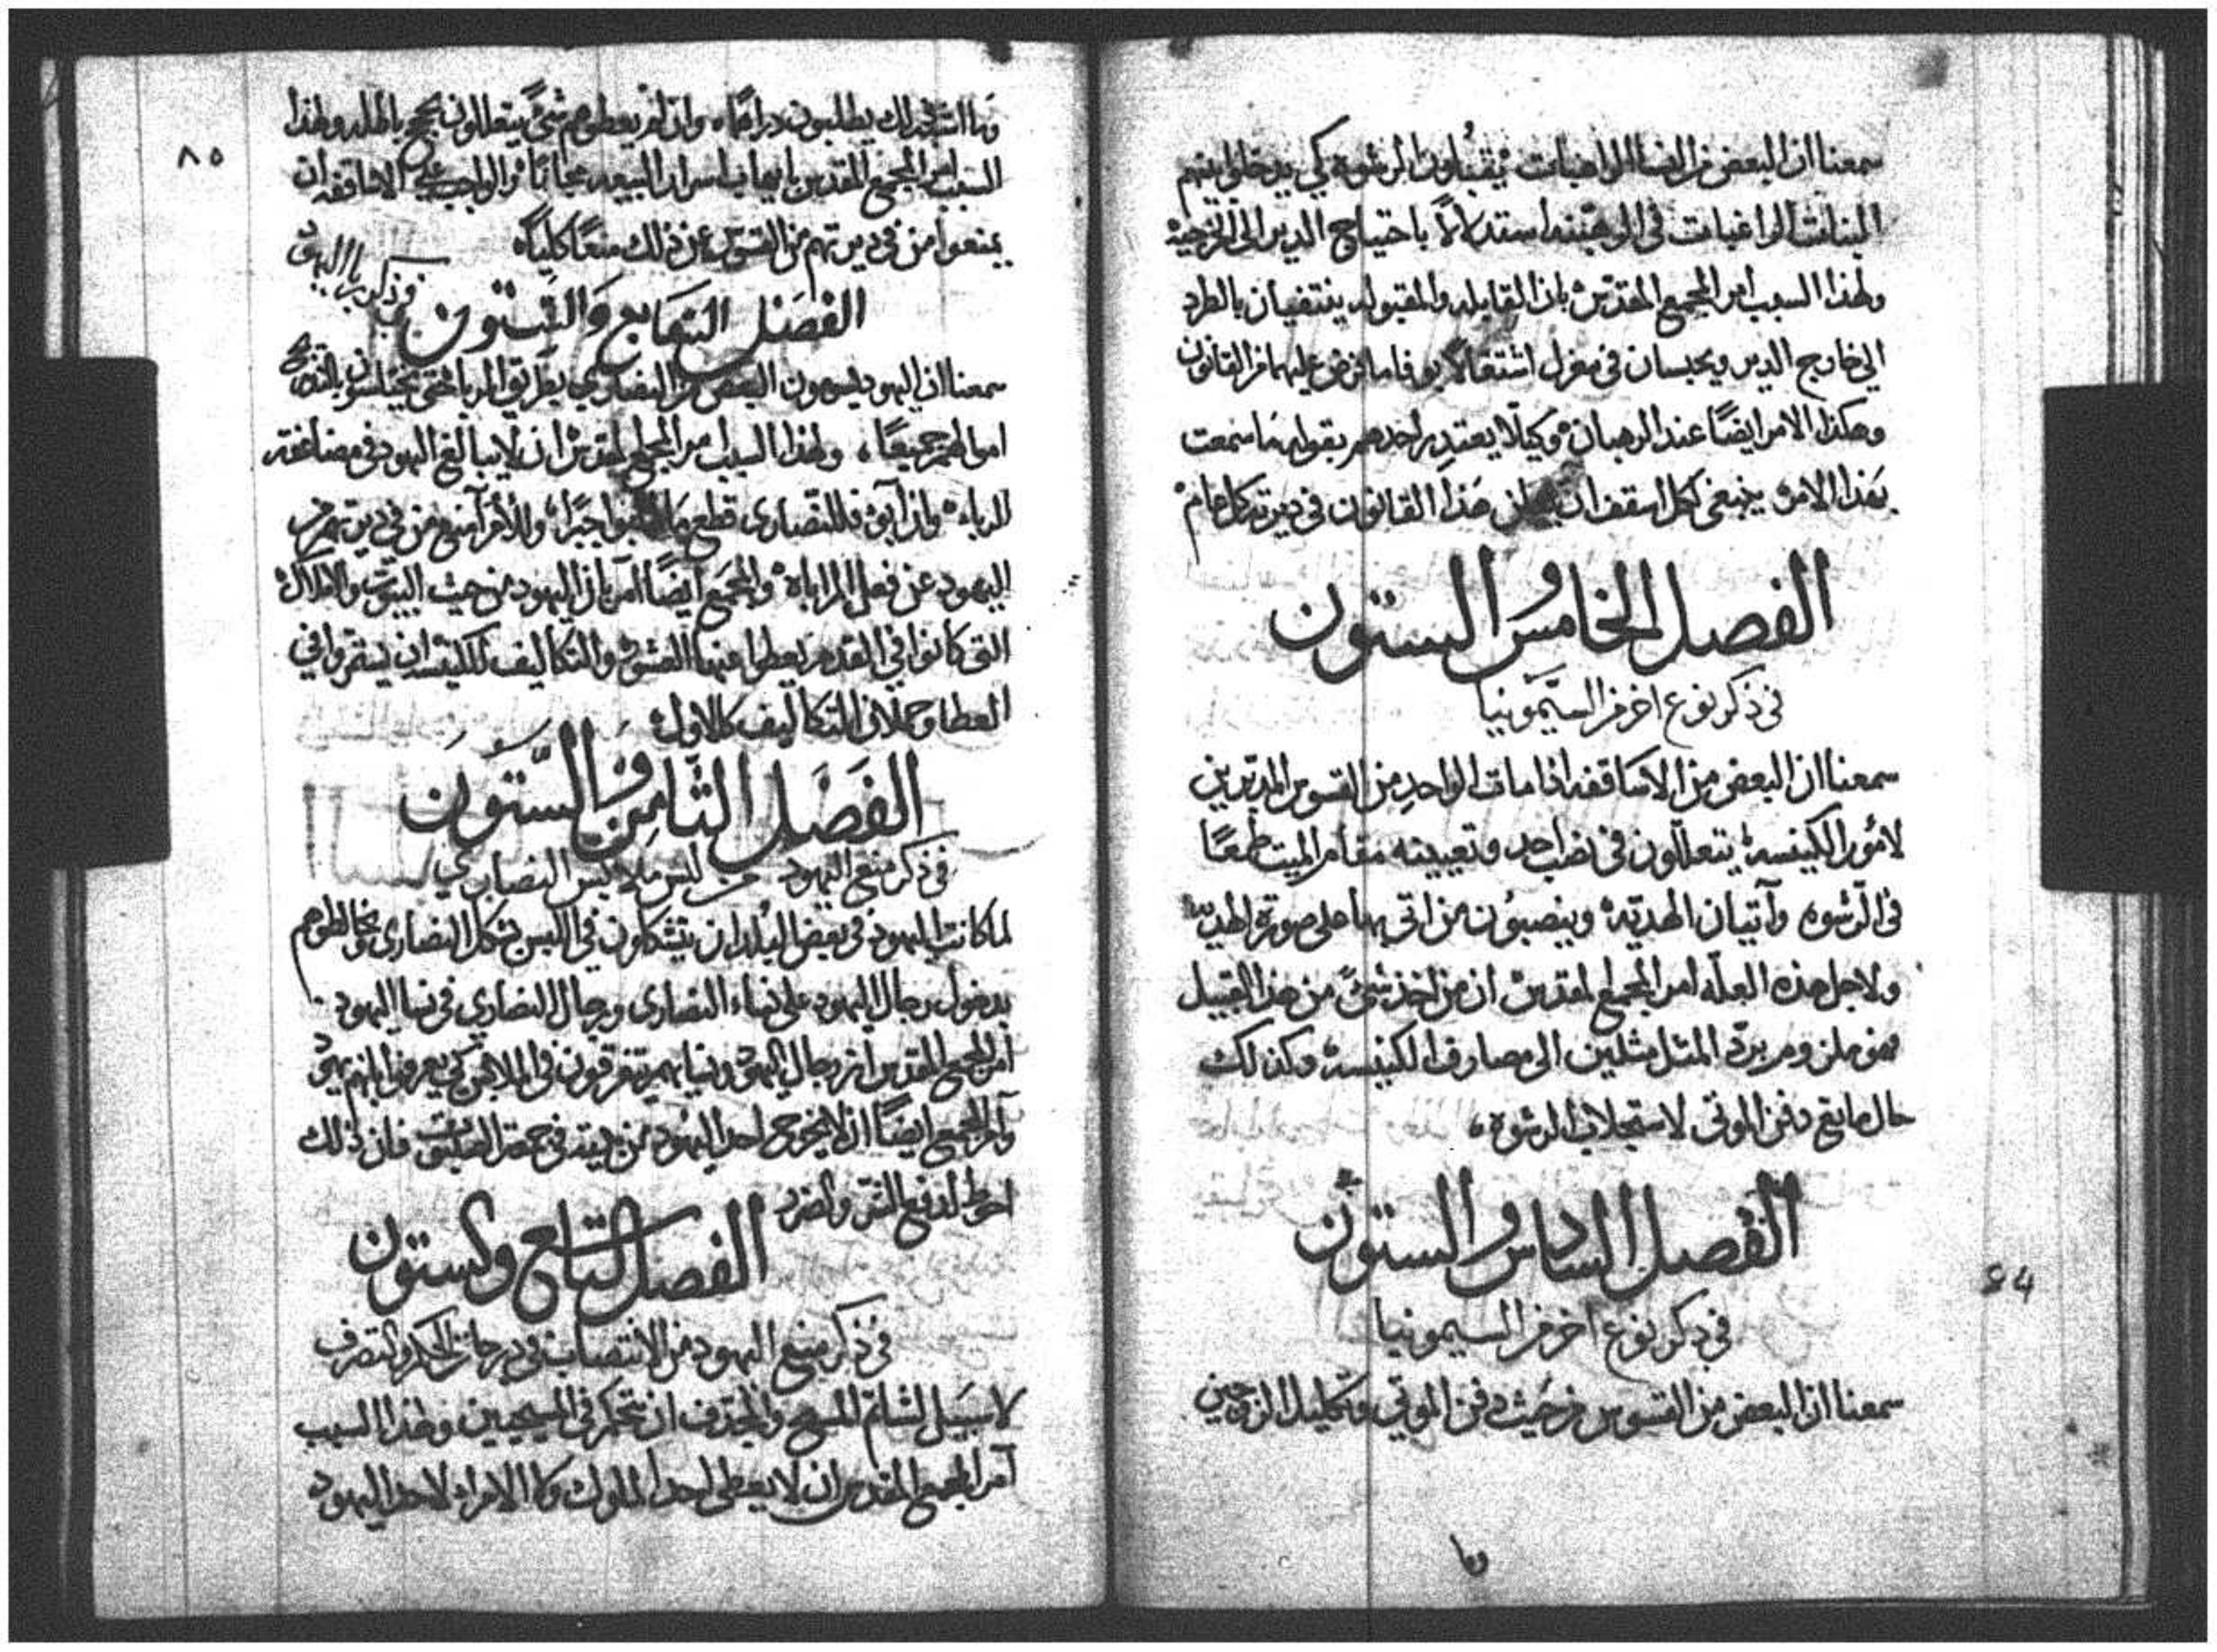 سمعنا ان البعض من النسا الراهبات يقبلون الرشوه كي يدخلوا بينهم
البنات الراغبات في الرهبنه استدلالاً باحتياج الدير الى الترجيه
ولهذا السبب امر المجمع المقدس بان القابله والمقبوله ينتفيان بالطرد
الي خارج الدير ويحبسان في معزل اشتغالاً بوفا ما فرض عليهما من القانون
وهكذا الامر ايضًا عند الرهبان وكيلا يعتدر احدهم بقوله ما سمعت
بهذا الامر ينبغي لكل اسقف ان يعلن هذا القانون في ديرته كل عام
الفصل الخامس والستون
في ذكر نوع اخر من السيمونيا
سمعنا ان البعض من الاساقفه اذا مات الواحد من القسوس المدبرين
لامور الكنيسة يتعللون في نصب احد وتعيينه مقام الميت طمعًا
في الرشوه وآتيان الهديّة وينصبون من اتى بها على صورة الهديه
ولاجل هذه العلّه امر المجمع المقدس ان من اخذ شئ من هذا القبيل
فهو ملزوم بردّ المثل مثلين الى مصارف الكنيسة وكذلك
حال مانع دفن الموتى لاستجلاب الرشوة
الفصل السادس والستون
في ذكر نوع اخر من السيمونيا
سمعنا ان البعض من القسوس من حيث دفن الموتى وتكليل الزوجين
وما
64
٨٥
وما اشبه ذلك يطلبون دراهمًا وان لم يعطوهم شئ يتعللون بحجج باطله ولهذا
السبب امر المجمع المقدس بايهاب اسرار البيعه مجانًا والواجب على الاساقفه ان
يمنعوا من في ديرتهم من القسوس عن ذلك منعًا كليًا
الفصل السابع والستون
في ذكر ربا اليهود
سمعنا ان اليهود يسومون البعض من النصارى بطريق الربا حتى يختلسون بالتدريج
اموالهم جميعًا، ولهذا السبب امر المجمع المقدس ان لا يبالغ اليهود في مضاعفة
الربا وان ابوا فللنصارى قطع ما جبرًا والأمرا منع من في ديرتهم من
اليهود عن فعل المراباة والمجمع ايضًا آمر بان اليهود من حيث البيوت والاملاك
التي كانوا في القدم يعطوا عنها العشور والتكاليف للكنيسة ان يستمروا في
العطا وحملان التكاليف كالاول
الفصل الثامن والستون
في ذكر منع اليهود من لبس ملابس النصاري
لما كانت اليهود في بعض البلدان يتشكلون في اللبس شكل النصارى وخالطوهم
بدخول رجال اليهود على نساء النصارى ورجال النصاري في نسا اليهود
امر المجمع المقدس ان رجال اليهود ونسايهم يتفرقون في الملابس كي يعرفوا بانهم يهود
وآمر المجمع ايضًا ان لا يخرج احد اليهود من بيته في جمعة الصلبوت فان ذلك
احوط لدفع الشر والضرر
الفصل التاسع والستون
في ذكر منع اليهود من الانتصاب في درجات الحكم والتصرف
لا سبيل لشاتم المسيح والمجدف ان يتحكم في المسيحيين ولهذا السبب
آمر المجمع المقدس ان لا يعطي احد الملوك والامراء لاحد اليهود